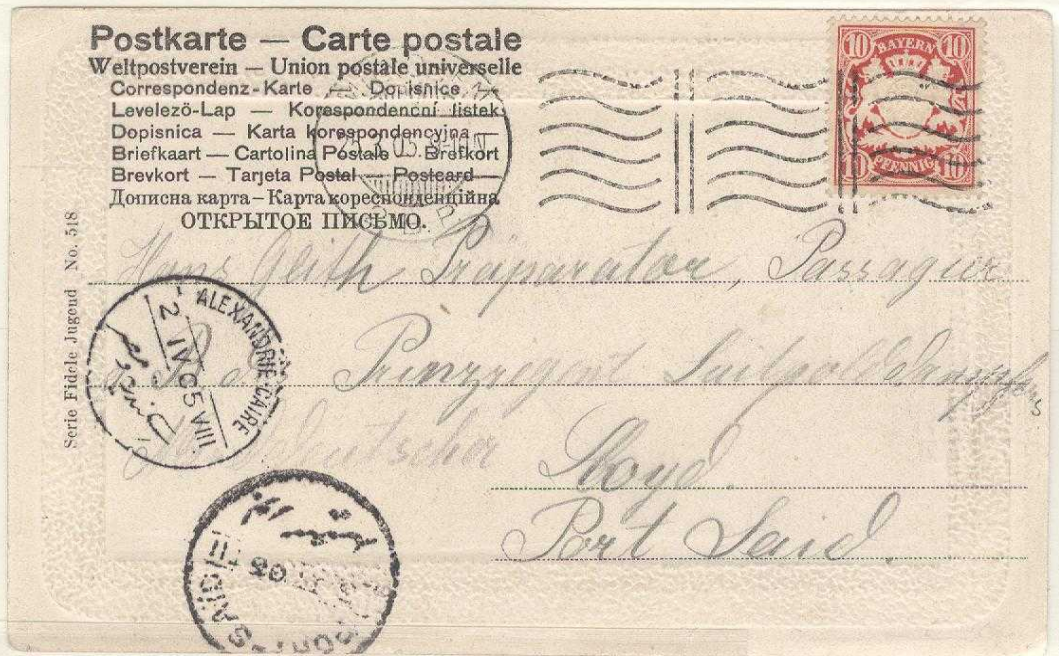 Postkarte — Carte postale
Weltpostverein — Union postale universelle
Correspondenz-Karte — Dopisnice —
Levelező-Lap — Korespondencní listek
Dopisnica — Karta korespondencyjna —
Briefkaart — Cartolina Postale — Brefkort
Brevkort — Tarjeta Postal — Postcard —
Дописна карта — Карта кореспонденційна
ОТКРЫТОЕ ПИСЬМО.
BAYERN
10 10
10 PFENNIG 10
Serie Fidele Jugend No. 518
Hans Präparator, Passagier
Prinzregent
Deutscher Lloyd.
Port Said.
ALEXANDRIE-CAIRE
2 IV 05 VIII
PORT-SAID